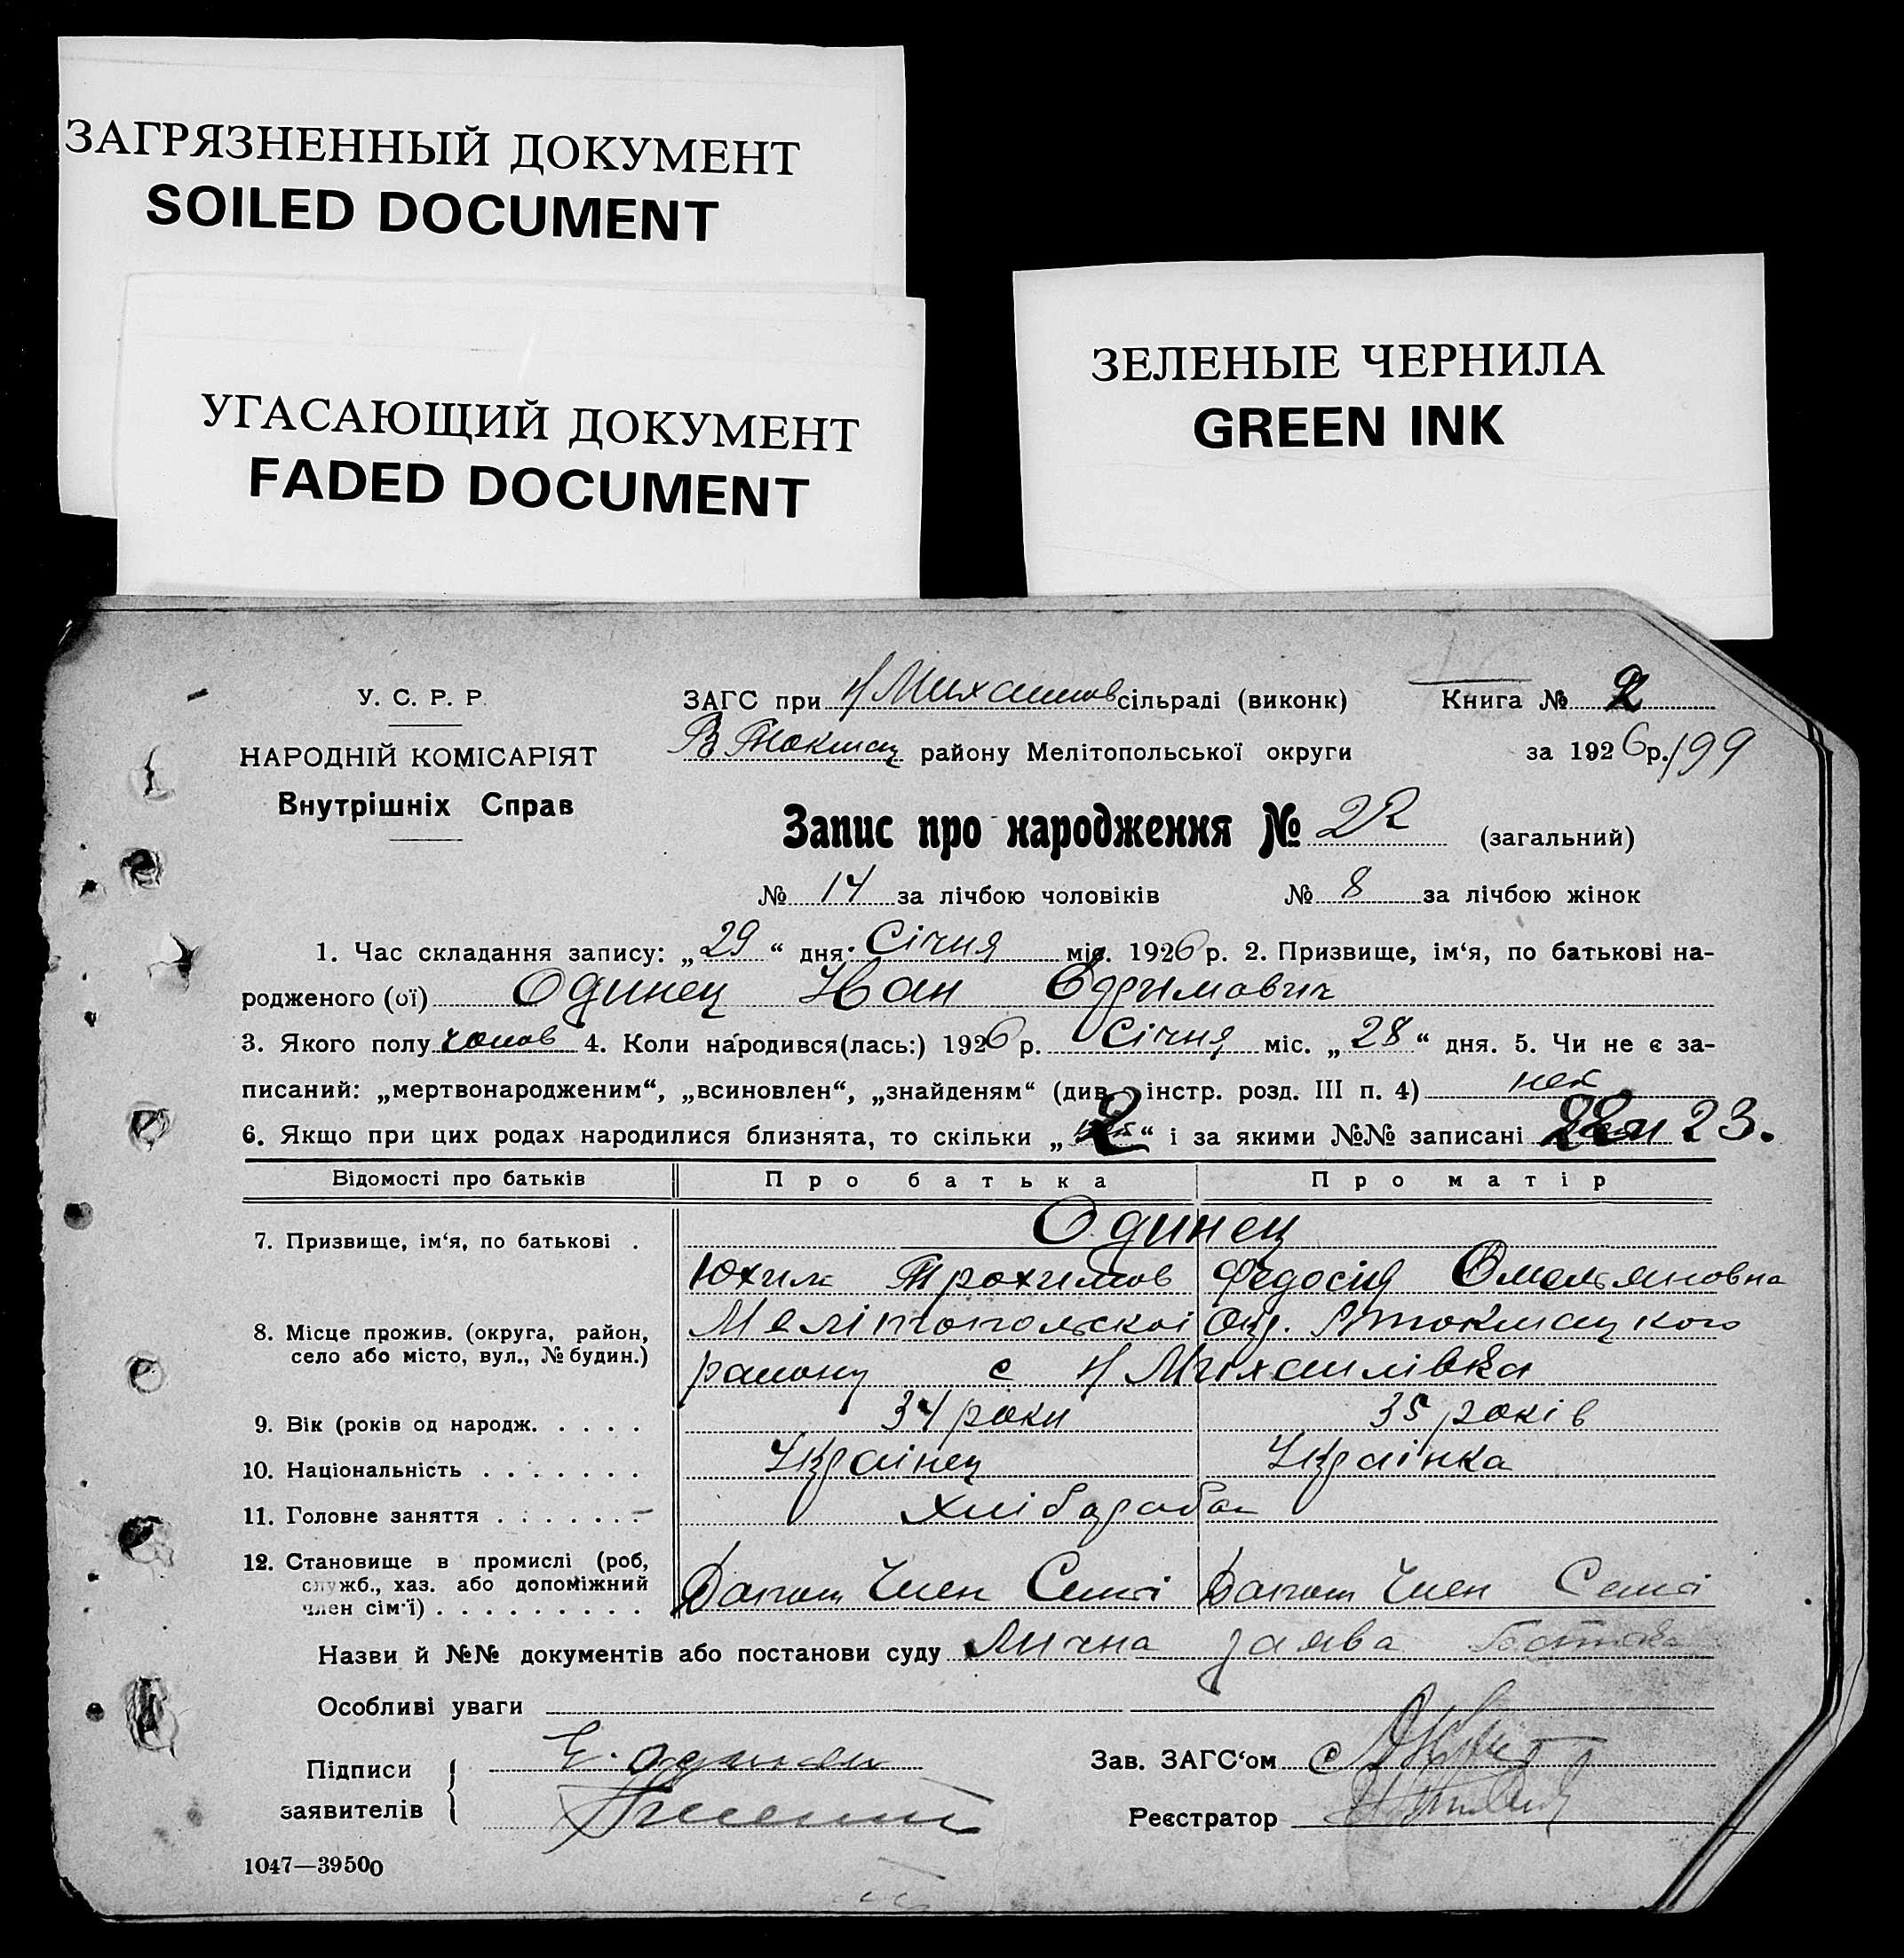 ЗАГРЯЗНЕННЫЙ ДОКУМЕНТ
SOILED DOCUMENT
УГАСАЮЩИЙ ДОКУМЕНТ
FADED DOCUMENT
ЗЕЛЕНЫЕ ЧЕРНИЛА
GREEN INK
У. С. Р. Р.
НАРОДНІЙ КОМІСАРІЯТ
Внутрішніх Справ
ЗАГС при Н Михайлов сільраді (виконк)
В Токмац району Мелітопольської округи
Книга № 2
за 1926 р. 199
Запис про народження № 22 (загальний)
№ 14 за лічбою чоловіків № 8 за лічбою жінок
1. Час складання запису: „29“ дня Січня міс. 1926 р. 2. Призвище, ім‘я, по батькові на-
родженого (ої) Одинец Иван Ефимович
3. Якого полу чолов 4. Коли народився(лась:) 1926 р. Січня міс. „28“ дня. 5. Чи не є за-
писаний: „мертвонародженим“, „всиновлен“, „знайденям“ (див. інстр. розд. III п. 4) нет
6. Якщо при цих родах народилися близнята, то скільки „2“ і за якими №№ записані 22 и 23.
Відомості про батьків Про батька Про матір
7. Призвище, ім‘я, по батькові . Одинец
Юхим Трохимов Федосія Омельяновна
8. Місце прожив. (округа, район, село або місто, вул., № будин.) Мелітопольскоі Окр. Втокмацкого
району с Н Міхайлівка
9. Вік (років од народж. . . . . 34 роки 35 років
10. Національність . . . . . . . Українец Українка
11. Головне заняття . . . . . . . Хліборобы
12. Становище в промислі (роб, служб., хаз. або допоміжний член сім‘ї) . . . . . . . . . Допом Член Семі Допом Член Семі
Назви й №№ документів або постанови суду Лична заява батька
Особливі уваги
Підписи заявителів Е. Одинец
Зав. ЗАГС‘ом
Реєстратор
1047—39500